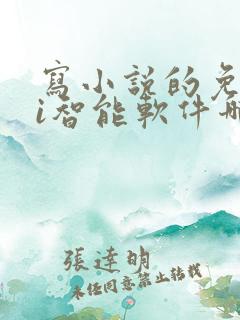 寫小說的免
i智能軟件哪
張達明
未經同意禁止轉載